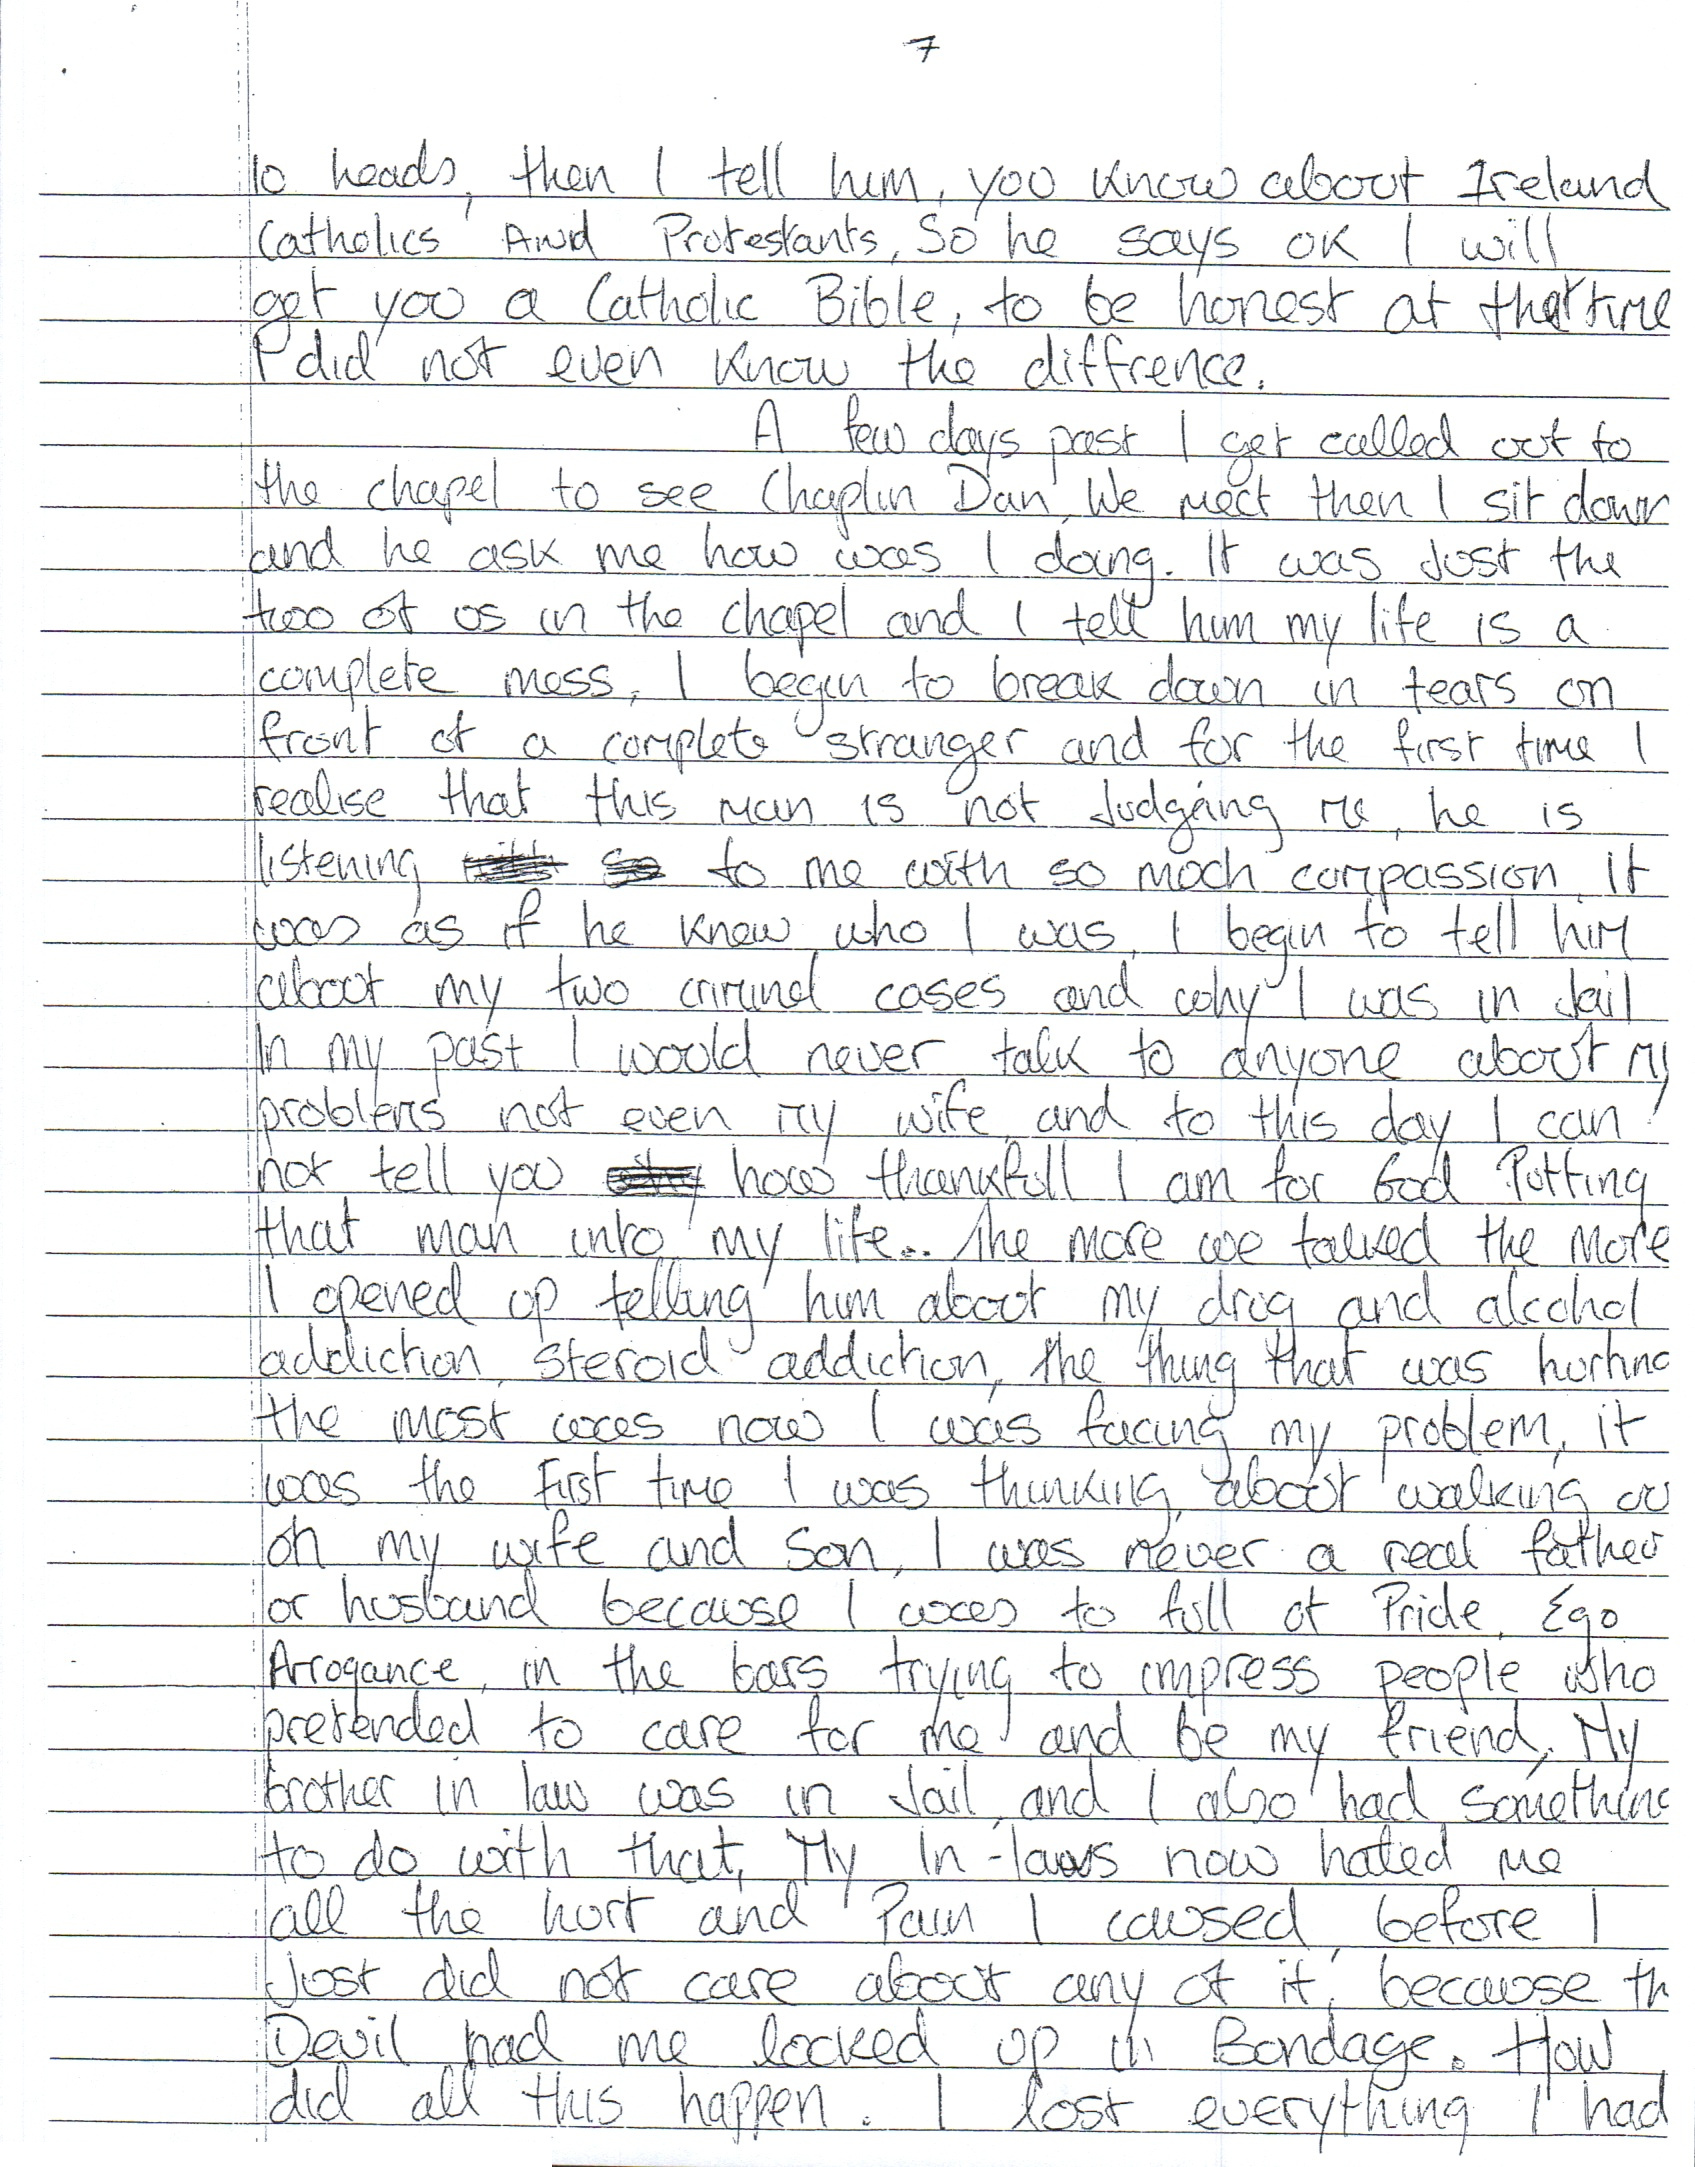 7
10 heads, then I tell him, you know about Ireland
Catholics And Protestants, So he says ok I will
get you a Catholic Bible, to be honest at that time
I did not even know the diffrence.
A few days past I get called out to
the chapel to see Chaplin Dan, We meet then I sit down
and he ask me how was I doing. It was Just the
two of us in the chapel and I tell him my life is a
complete mess, I begin to break down in tears on
front of a complete stranger and for the first time I
realise that this man is not Judgeing me, he is
listening to me with so much compassion, it
was as if he knew who I was, I begin to tell him
about my two criminel cases and why I was in Jail
In my past I would never talk to anyone about my
problems not even my wife, and to this day I can
not tell you how thankfull I am for God Putting
that man into my life... The more we talked the more
I opened up telling him about my drug and alcohol
addiction, steroid addiction, the thing that was hurting
the most was now I was facing my problem, it
was the First time I was thinking about walking ou
on my wife and Son, I was never a real father
or husband because I was to full of Pride, Ego
Arrogance, in the bars trying to impress people who
pretended to care for me and be my friend, My
brother in law was in Jail, and I also had something
to do with that, My In-laws now hated me
all the hurt and Pain I caused, before I
Just did not care about any of it, because th
Devil had me locked up in Bondage. How
did all this happen. I lost everything I had